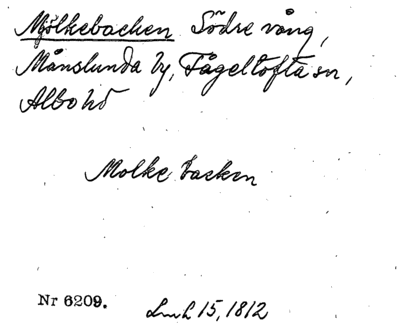 Mjölkebacken Södre vång,
Månslunda by, Fågeltofta sn,
Albo hd
Molke backen
Nr 6209.
Lmh 15, 1812